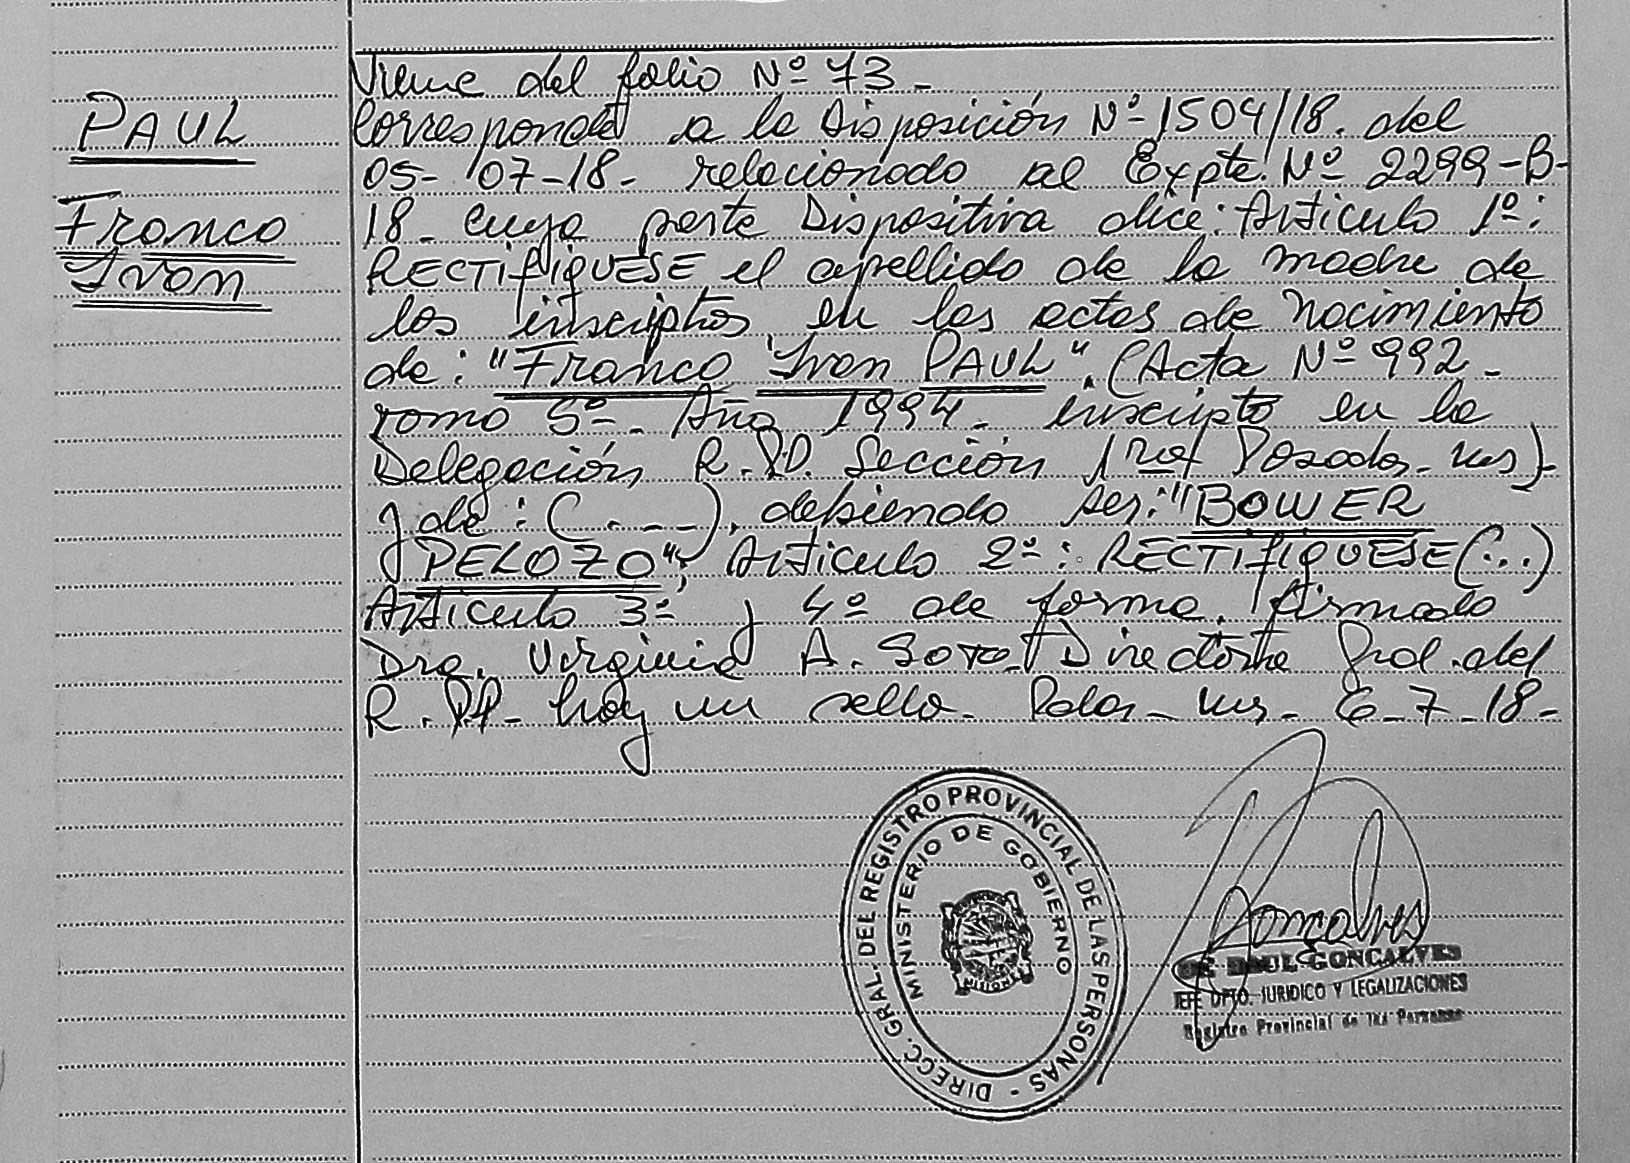 PAUL
Franco
Ivon
Viene del folio Nº 73-
Corresponde a la Disposición Nº 1504/18. del
05-07-18- relacionado al Expte. Nº 2299-B-
18- cuya parte Dispositiva dice: Artículo 1º:
RECTIFIQUESE el apellido de la madre de
los inscriptos en las actas de nacimiento
de: "Franco Ivon PAUL". (Acta Nº 992-
Tomo 5º- Año 1994- inscripto en la
Delegación R.P.P. Sección 1ra Posadas- Mns)-
y de: (.---), debiendo ser: "BOWER
PELOZO"; Artículo 2º: RECTIFIQUESE (...)
Artículo 3º y 4º de forma. firmado
Dra. Virginia A. Soto- Directora Gral. del
R.P.P- hay un sello- Pdas- Mns- 6-7-18-
DIRECC. GRAL. DEL REGISTRO PROVINCIAL DE LAS PERSONAS -
MINISTERIO DE GOBIERNO
MISIONES
Goncalves
RAUL GONCALVES
JEFE DPTO. JURIDICO Y LEGALIZACIONES
Registro Provincial de las Personas